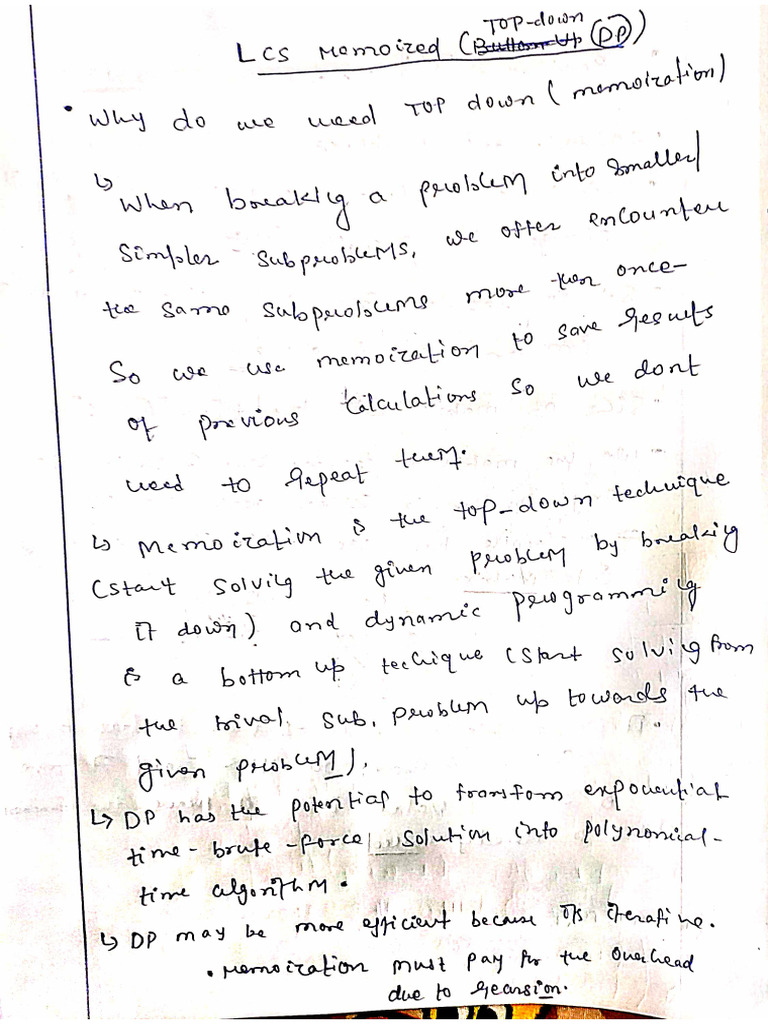 TOP-down
LCS Memoized (Buttom-Up DP)
• Why do we need TOP down (memoization)
↳ When breaking a problem into smaller/
Simpler subproblems, we often encounter
the same subproblems more then once-
So we use memoization to save results
of previous calculations so we dont
need to repeat them.
↳ Memoization is the top-down technique
(start solving the given problem by breaking
it down) and dynamic programming
is a bottom up techique (start solving from
the trival sub, problem up towards the
given problem).
↳ DP has the potential to transform exponential
time-brute-force solution into polynomial-
time algorithm.
↳ DP may be more efficient because its iterative.
• Memoization must pay for the overhead
due to recursion.